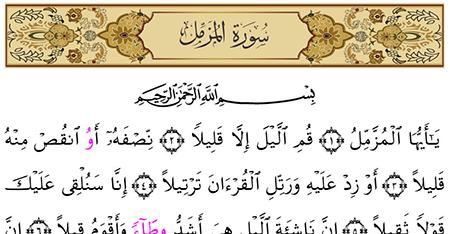 سُورَةُ المُزَّمِّل
بِسْمِ اللَّهِ الرَّحْمَٰنِ الرَّحِيمِ
يَٰٓأَيُّهَا الْمُزَّمِّلُ ﴿١﴾ قُمِ الَّيْلَ إِلَّا قَلِيلًا ﴿٢﴾ نِّصْفَهُۥٓ أَوُ انقُصْ مِنْهُ
قَلِيلًا ﴿٣﴾ أَوْ زِدْ عَلَيْهِ وَرَتِّلِ الْقُرْءَانَ تَرْتِيلًا ﴿٤﴾ إِنَّا سَنُلْقِى عَلَيْكَ
قَوْلًا ثَقِيلًا ﴿٥﴾ إِنَّ نَاشِئَةَ الَّيْلِ هِىَ أَشَدُّ وِطَآءً وَأَقْوَمُ قِيلًا ﴿٦﴾ إِنَّ